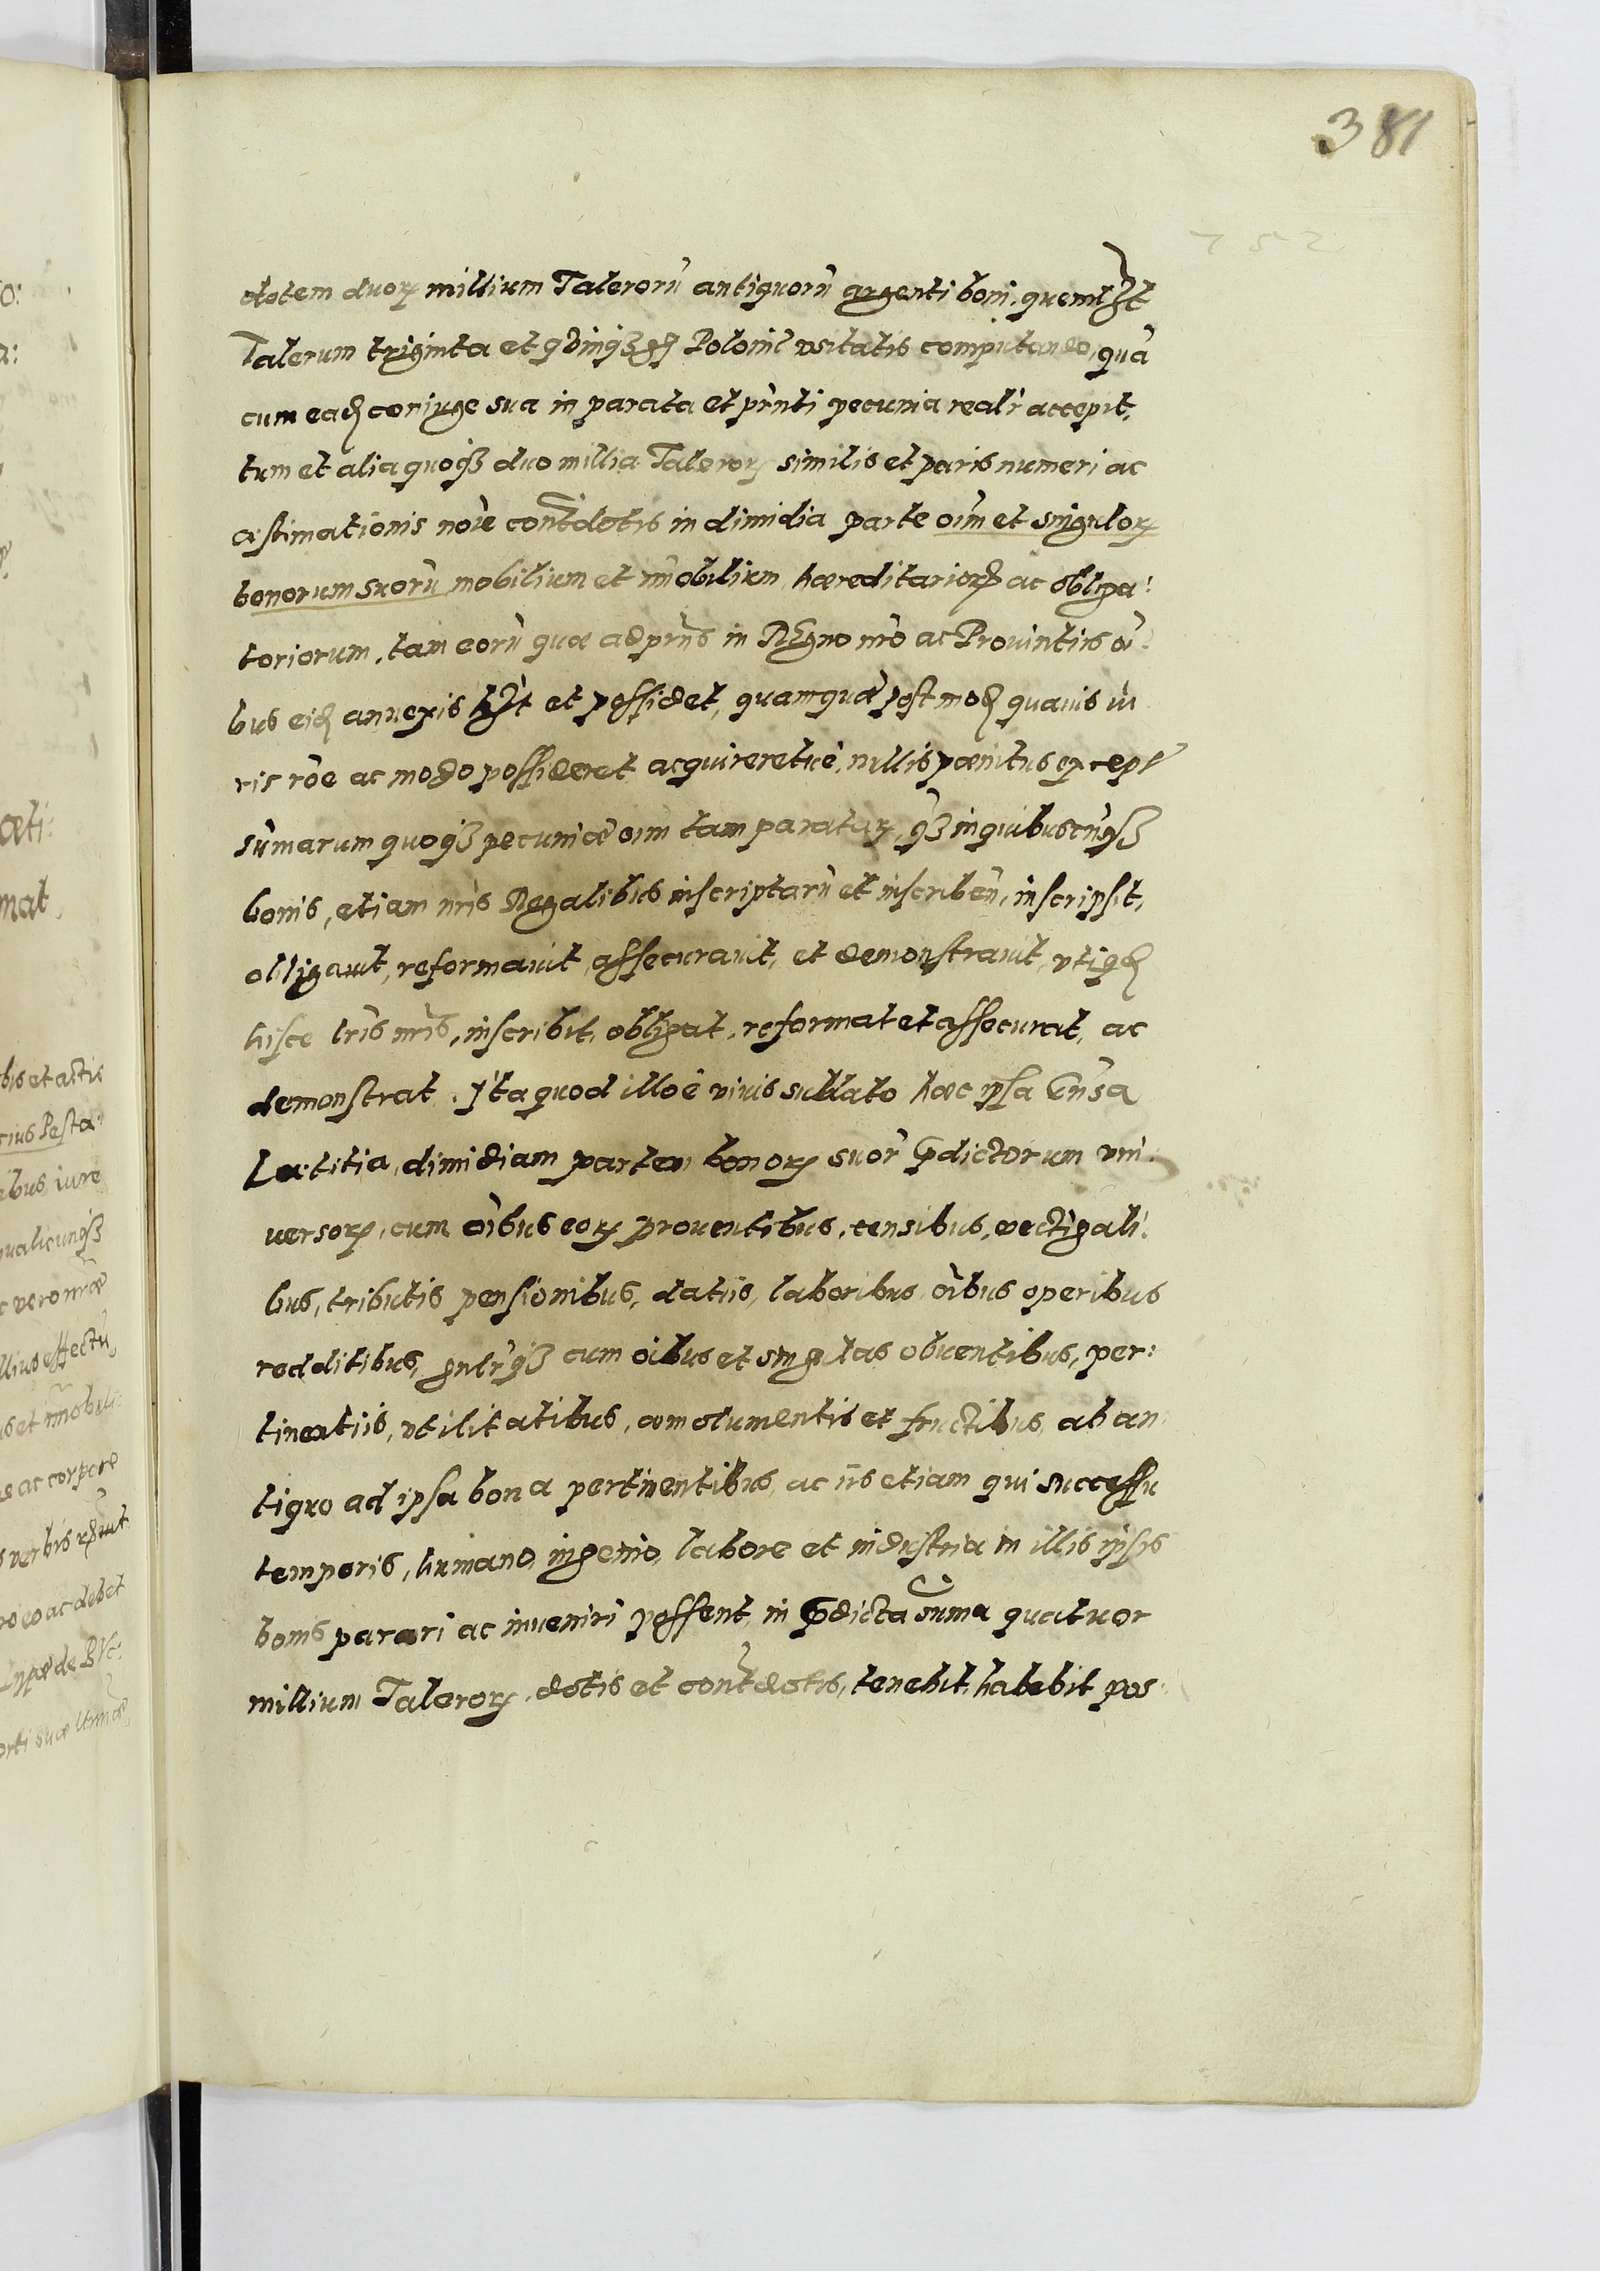 381
dotem duorꝝ millium Talerorū antiquorū argenti boni, quemlꝫt
Talerum triginta et qͥnqꝫ gꝭ Poloniē usitatis computando, quā
cum eadꝫ coniuge sua in parata et pr̄nti pecunia realr̄ accepit,
tum et alia quoqꝫ duo millia Talerorꝝ similis et paris numeri ac
æstimationis noīe contͣdotis in dimidia parte oīm et singulorꝝ
bonorum suorū mobilium et im̄obilium hæreditariorꝝ ac obliga:
toriorum, tam eorū quæ ad præns in Regno nr̄o ac Prouintiis oī:
bus eidꝫ annexis hꝫt et possidet, quam quæ post modꝫ quauis iu
ris rōe ac modo possideret acquireretue, nullis pœnitus except
sum̄arum quoqꝫ pecuniæ oīm tam paratarꝝ, qꝫ in quibuscunqꝫ
bonis, etiam nr̄is Regalibus inscriptarū et inscriben̄, inscripsit,
obligauit, reformauit, assecurauit, et demonstrauit, utiqꝫ
hisce lr̄is nr̄is, inscribit, obligat, reformat et assecurat, ac
demonstrat. Ita quod illo ē viuis sublato hæc ipsa Gn̄sa
Lætitia, dimidiam partem bonorꝝ suor̄ p̄dictorum uni:
uersorꝝ, cum oībus eorꝝ prouentibus, censibus, vectigali:
bus, tributis pensionibus, datiis, laboribus, oībus operibus
redditibus, gn̄lr̄qꝫ cum oībus et singulas obuentibus, per:
tinentiis, utilitatibus, emolumentis et fructibus, ab an:
tiquo ad ipsa bona pertinentibus, ac iis etiam qui successu
temporis, humano, ingenio, labore et industria in illis ipsis
bonis parari ac inueniri possent, in p̄dicta sum̄a quatuor
millium Talerorꝝ, dotis et contͣdotis, tenebit, habebit pos: